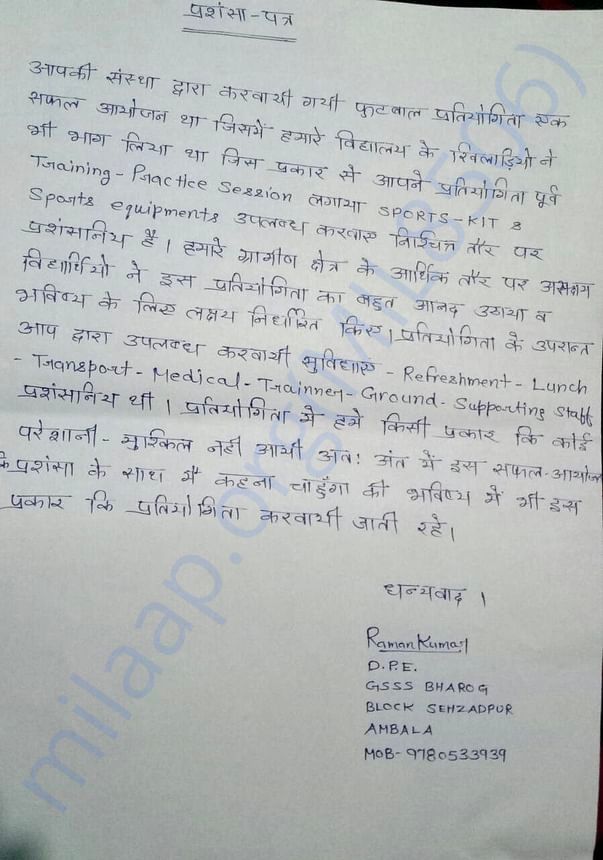 प्रशंसा-पत्र
आपकी संस्था द्वारा करवायी गयी फुटबाल प्रतियोगिता एक
सफल आयोजन था जिसमें हमारे विद्यालय के खिलाड़ियो ने
भी भाग लिया था जिस प्रकार से आपने प्रतियोगिता पूर्व
Training-Practice Session लगाया SPORTS-KIT &
Sports equipments उपलब्ध करवाए निश्चित तौर पर
प्रशंसानिय है। हमारे ग्रामीण क्षेत्र के आर्थिक तौर पर
विद्यार्थियो ने इस प्रतियोगिता का बहुत आनद उठाया व
भविष्य के लिए लक्ष्य निर्धारित किए। प्रतियोगिता के उपरान्त
आप द्वारा उपलब्ध करवायी सुविधाए - Refreshment - Lunch
- Transport - Medical - Trainner - Ground - Supporting Staff
प्रशंसनिय थी। प्रतियोगिता मे हमे किसी प्रकार कि कोई
परेशानी - मुश्किल नही आयी अतः अंत में इस सफल-आयोजन
कि प्रशंसा के साथ मैं कहना चाहूँगा की भविष्य में भी इस
प्रकार कि प्रतियोगिता करवायी जाती रहे।
धन्यवाद ।
Raman Kumar
D.P.E.
GSSS BHAROG
BLOCK SEHZADPUR
AMBALA
MOB- 9780533939
milaap.org(MIL8506)